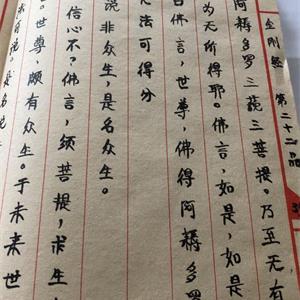 金刚经 第二十二品
阿耨多罗三藐三菩提。乃至无有
为无所得耶。佛言,如是,如是
白佛言,世尊,佛得阿耨多罗
无法可得分
说非众生,是名众生。
信心不?佛言,须菩提,生
世尊,颇有众生。于未来世
说。是名